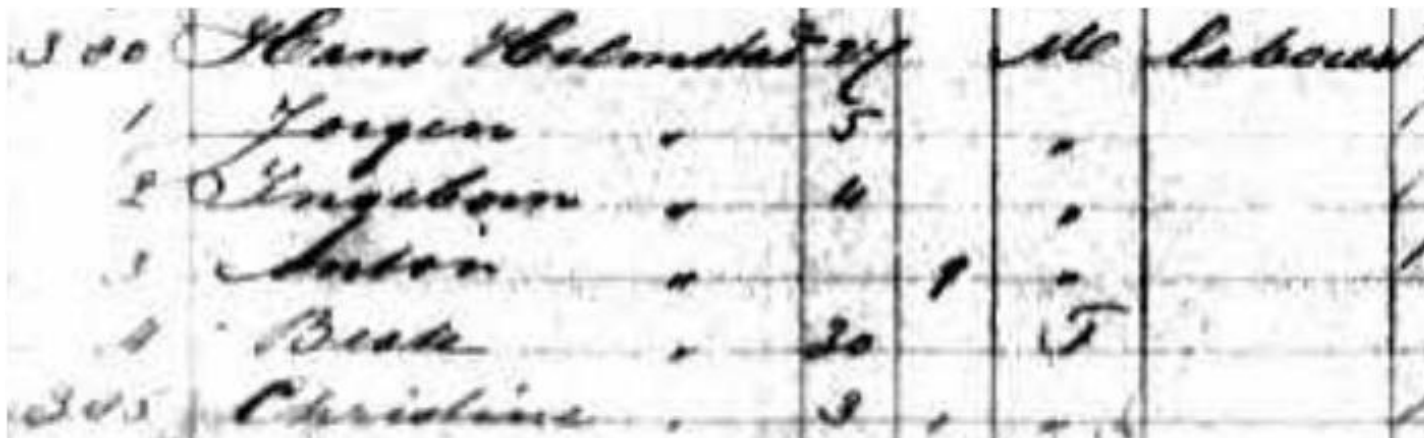 380 Hans Helmstad 27 M Labourer
1 Jorgen " 5 "
2 Ingeborn " 4 "
3 Anton " 9 "
4 Beate " 30 F
385 Christine " 3 " "